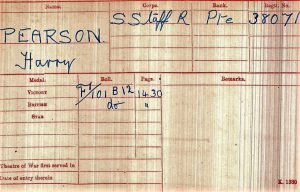 Name. Corps. Rank. Regtl. No.
PEARSON S Staff R Pte 38071
Harry
Medal. Roll. Page. Remarks.
VICTORY F/101 B12 1430
BRITISH do "
STAR
Theatre of War first served in
Date of entry therein
K. 1380